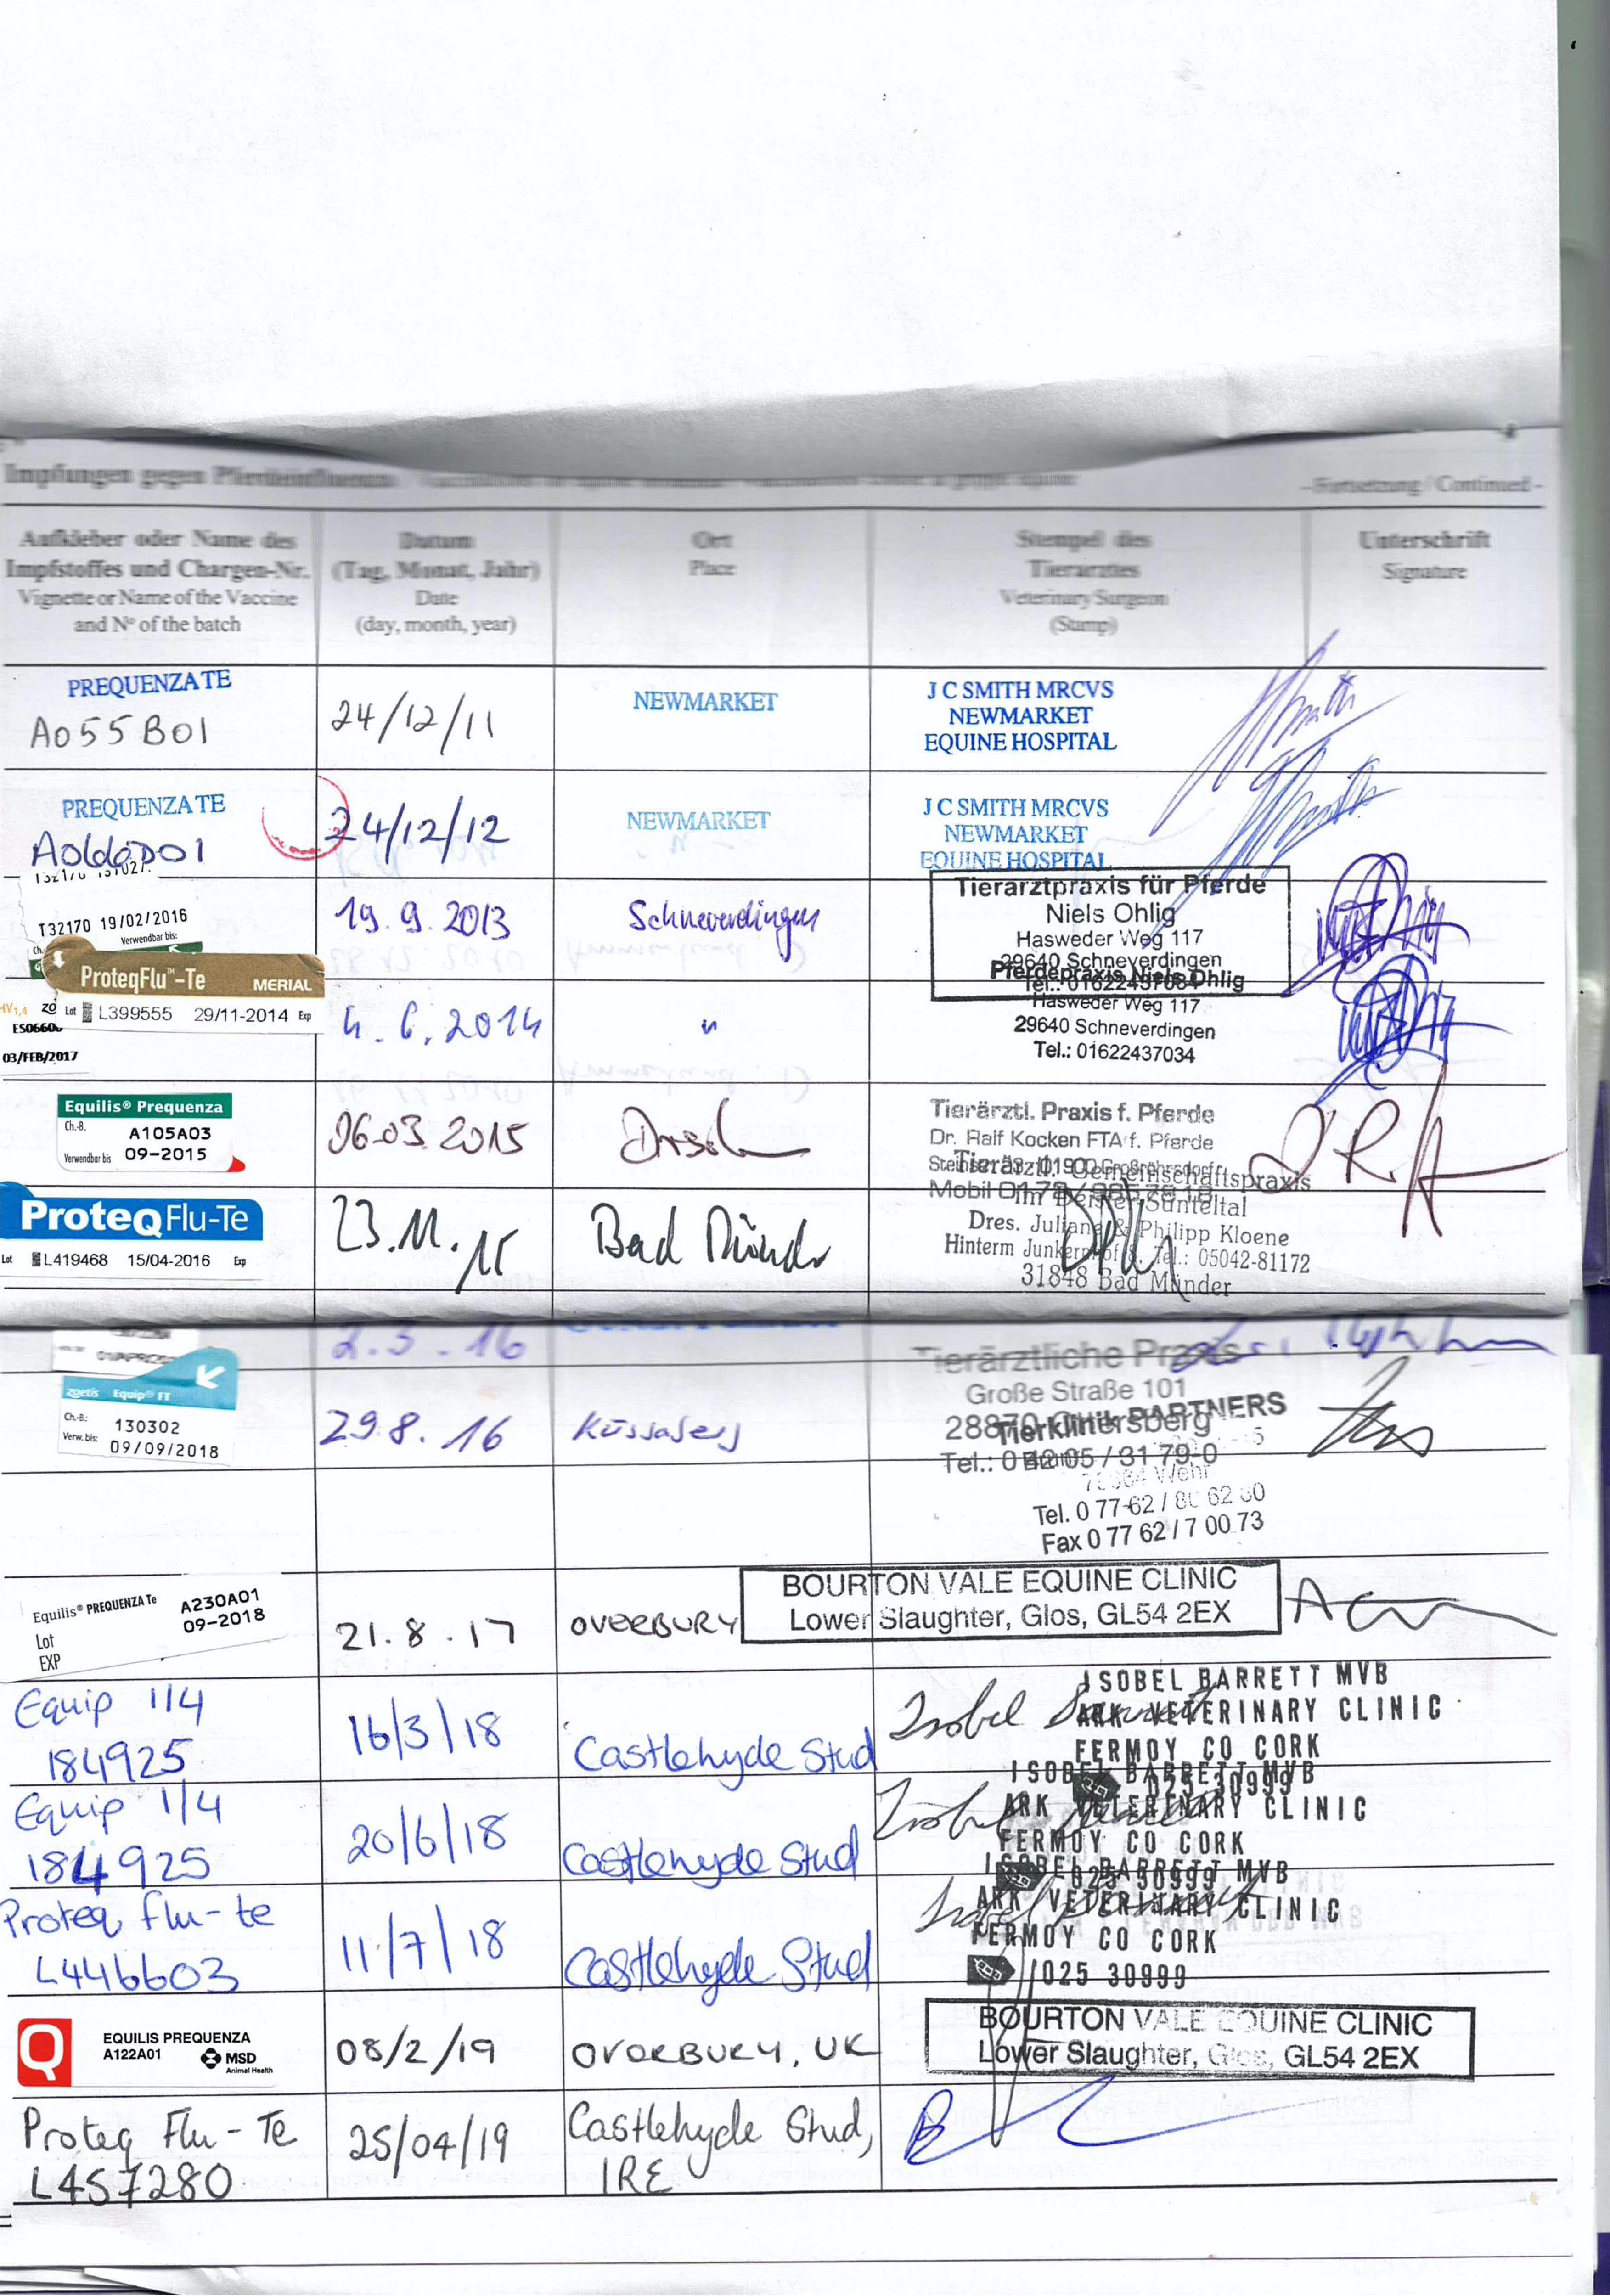 Impfungen gegen Pferdeinfluenza
- Fortsetzung / Continued -
Aufkleber oder Name des
Impfstoffes und Chargen-Nr.
Vignette or Name of the Vaccine
and Nº of the batch
Datum
(Tag, Monat, Jahr)
Date
(day, month, year)
Ort
Place
Stempel des
Tierarztes
Veterinary Surgeon
(Stamp)
Unterschrift
Signature
PREQUENZA TE
A055B01
24/12/11
NEWMARKET
J C SMITH MRCVS
NEWMARKET
EQUINE HOSPITAL
PREQUENZA TE
24/12/12
NEWMARKET
J C SMITH MRCVS
NEWMARKET
EQUINE HOSPITAL
T32170 19/02/2016
Verwendbar bis:
19.9.2013
Schneverdingen
Tierarztpraxis für Pferde
Niels Ohlig
Hasweder Weg 117
29640 Schneverdingen
ProteqFlu™-Te MERIAL
Lot L399555 29/11-2014 Exp
03/FEB/2017
4.6.2014
"
Pferdepraxis Niels Ohlig
Hasweder Weg 117
29640 Schneverdingen
Tel.: 01622437034
Equilis® Prequenza
Ch.-B. A105A03
Verwendbar bis 09-2015
06.03.2015
Tierärztl. Praxis f. Pferde
Dr. Ralf Kocken FTA f. Pferde
ProteqFlu-Te
Lot L419468 15/04-2016 Exp
23.11.15
Bad Münder
Tierärztl. Gemeinschaftspraxis
Dres. Juliane & Philipp Kloene
Hinterm Junkernhof 8, Tel.: 05042-81172
31848 Bad Münder
2.3.16
Tierärztliche Praxis
Große Straße 101
28870 Ottersberg
Tel.: 0 42 05 / 31 79-0
zoetis Equip® FT
Ch.-B.: 130302
Verw. bis: 09/09/2018
29.8.16
Tierklinik PARTNERS
Wehr
Tel. 0 77 62 / 80 62 00
Fax 0 77 62 / 7 00 73
Equilis® PREQUENZA Te A230A01
09-2018
Lot
EXP
21.8.17
OVERBURY
BOURTON VALE EQUINE CLINIC
Lower Slaughter, Glos, GL54 2EX
Equip 1/4
184925
16/3/18
Castlehyde Stud
Isobel Barrett
ISOBEL BARRETT MVB
ARK VETERINARY CLINIC
FERMOY CO CORK
025 30999
Equip 1/4
184925
20/6/18
Castlehyde Stud
Isobel Barrett
ISOBEL BARRETT MVB
ARK VETERINARY CLINIC
FERMOY CO CORK
025 30999
Proteq flu-te
L446603
11/7/18
Castlehyde Stud
Isobel Barrett
ISOBEL BARRETT MVB
ARK VETERINARY CLINIC
FERMOY CO CORK
025 30999
EQUILIS PREQUENZA
A122A01
MSD
Animal Health
08/2/19
OVERBURY, UK
BOURTON VALE EQUINE CLINIC
Lower Slaughter, Glos, GL54 2EX
Proteq Flu-Te
L457280
25/04/19
Castlehyde Stud,
IRE